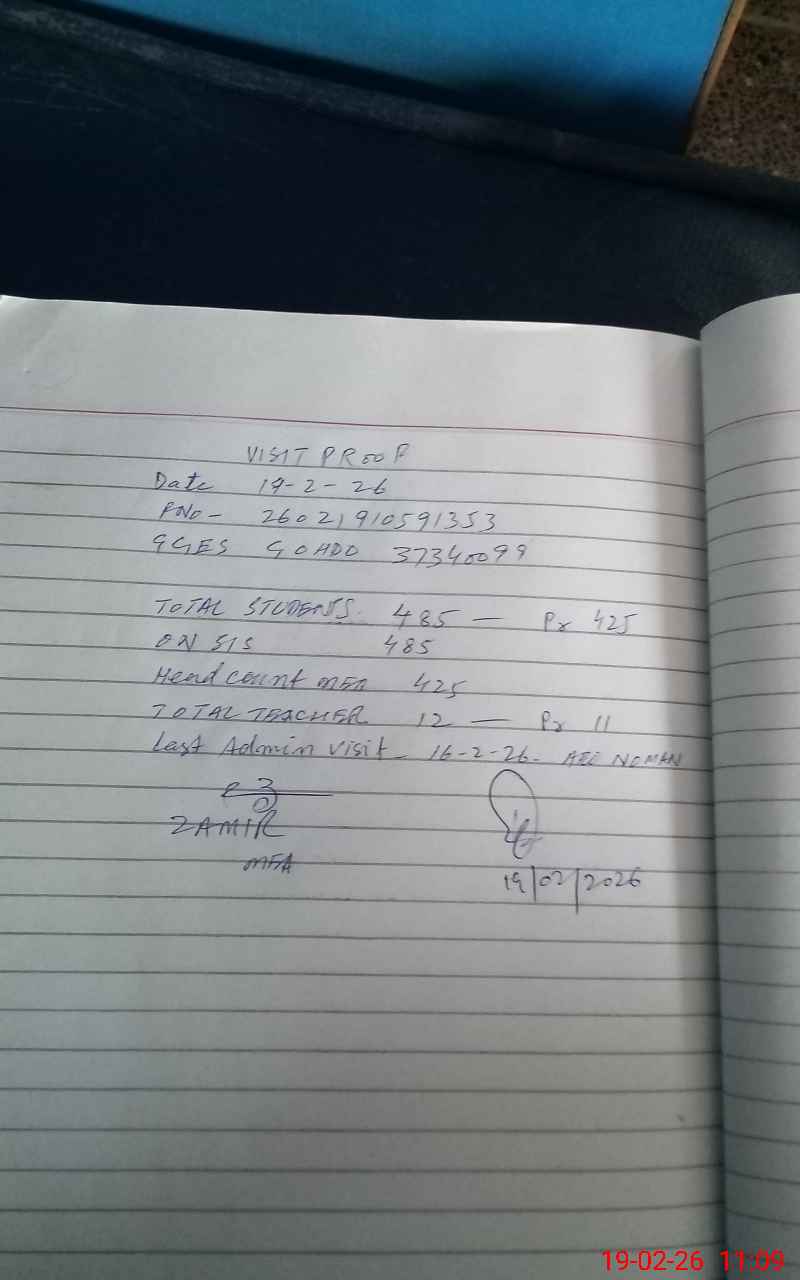 VISIT PROOF
Date 19-2-26
PNO- 26021910591353
GGES GOHDO 37340099
TOTAL STUDENTS. 485 — Pr 425
ON SIS 485
Head count MEA 425
TOTAL TEACHER 12 — Pr 11
Last Admin visit - 16-2-26- AEO NOMAN
ZAMIR
MEA
19/02/2026
19-02-26 11:09